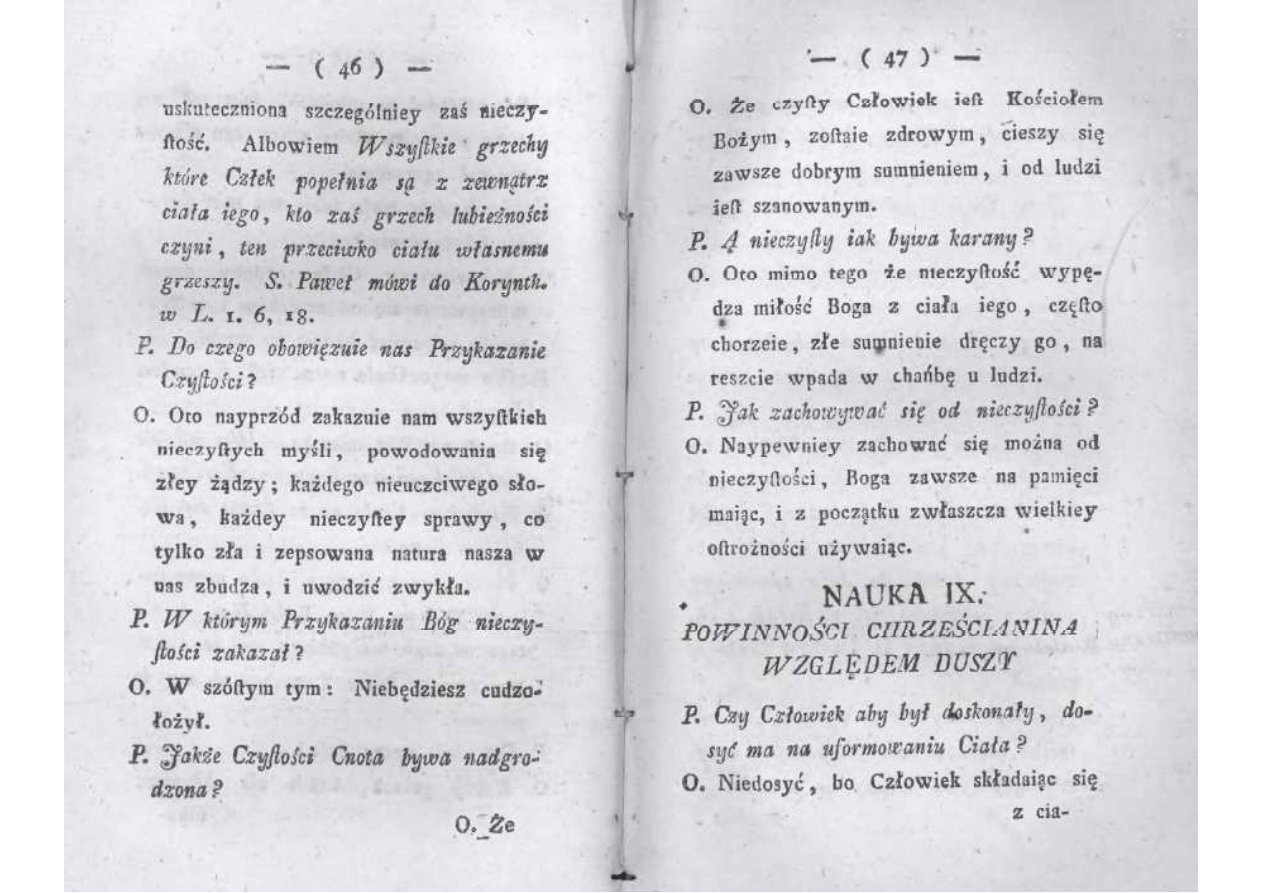 — ( 46 ) —
uskuteczniona szczególniey zaś nieczy-
ſtość. Albowiem Wszyſtkie grzechy
które Człek popełnia są z zewnątrz
ciała iego, kto zaś grzech lubieżności
czyni, ten przeciwko ciału własnemu
grzeszy. S. Paweł mówi do Korynth.
w L. 1. 6, 18.
P. Do czego obowięzuie nas Przykazanie
Czyſtości?
O. Oto nayprzód zakazuie nam wszyſtkich
nieczyſtych myśli, powodowania się
złey żądzy; każdego nieuczciwego sło-
wa, każdey nieczyſtey sprawy, co
tylko zła i zepsowana natura nasza w
nas zbudza, i uwodzić zwykła.
P. W którym Przykazaniu Bóg nieczy-
ſtości zakazał?
O. W szóſtym tym: Niebędziesz cudzo-
łożył.
P. Jakże Czyſtości Cnota bywa nadgro-
dzona?
O. Że
— ( 47 ) —
O. Że czyſty Człowiek ieſt Kościołem
Bożym, zoſtaie zdrowym, cieszy się
zawsze dobrym sumnieniem, i od ludzi
ieſt szanowanym.
P. Ą nieczyſty iak bywa karany?
O. Oto mimo tego że nieczyſtość wypę-
dza miłość Boga z ciała iego, częſto
chorzeie, złe sumnienie dręczy go, na
reszcie wpada w chańbę u ludzi.
P. Jak zachowywać się od nieczyſtości?
O. Naypewniey zachować się można od
nieczyſtości, Boga zawsze na pamięci
maiąc, i z początku zwłaszcza wielkiey
oſtrożności używaiąc.
NAUKA IX.
POWINNOŚCI CHRZEŚCIANINA
WZGLĘDEM DUSZY
P. Czy Człowiek aby był doskonały, do-
syć ma na uformowaniu Ciała?
O. Niedosyć, bo Człowiek składaiąc się
z cia-